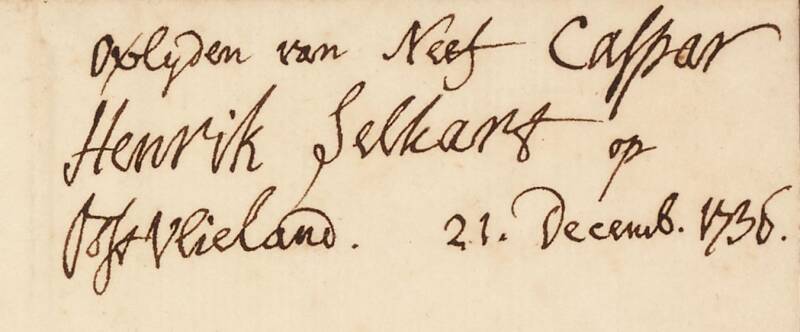 Overlyden van Neef Caspar
Henrik Selkart op
Oost Vlieland. 21. Decemb. 1736.